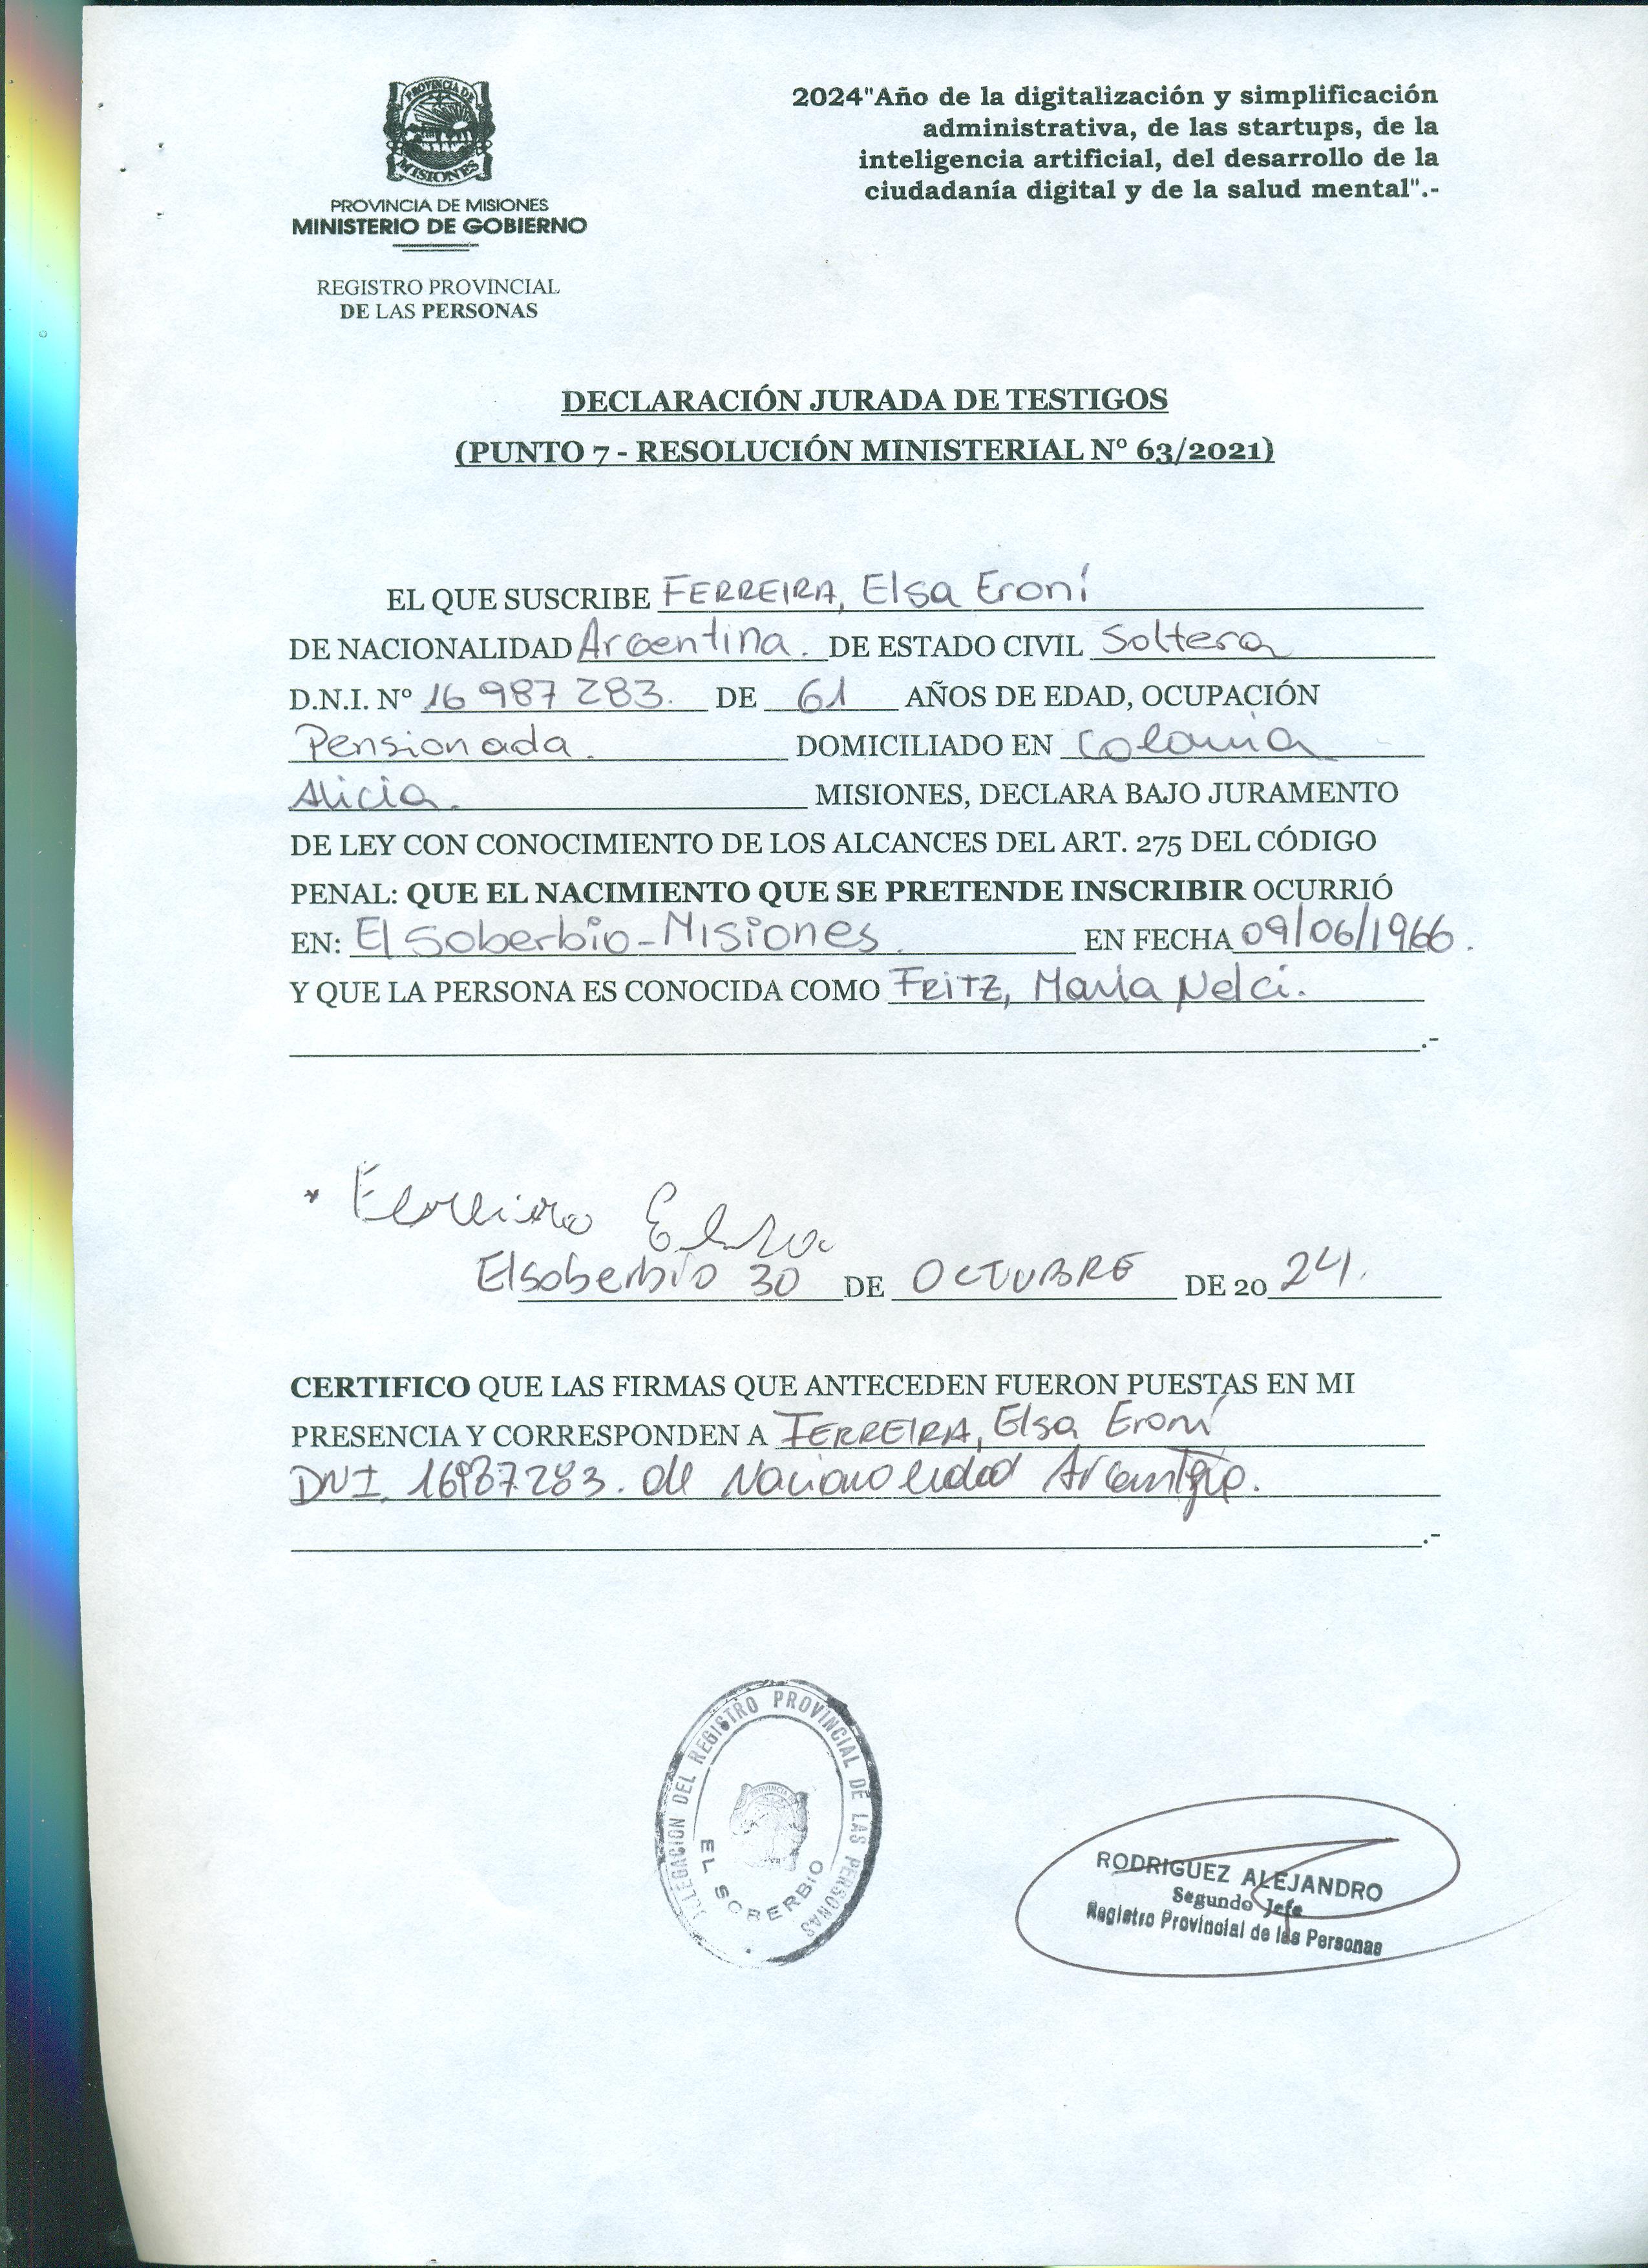 PROVINCIA DE
MISIONES
PROVINCIA DE MISIONES
MINISTERIO DE GOBIERNO
REGISTRO PROVINCIAL
DE LAS PERSONAS
2024"Año de la digitalización y simplificación
administrativa, de las startups, de la
inteligencia artificial, del desarrollo de la
ciudadanía digital y de la salud mental".-
DECLARACIÓN JURADA DE TESTIGOS
(PUNTO 7 - RESOLUCIÓN MINISTERIAL Nº 63/2021)
EL QUE SUSCRIBE FERREIRA, Elsa Eroní
DE NACIONALIDAD Argentina. DE ESTADO CIVIL Soltera
D.N.I. Nº 16 987 283. DE 61 AÑOS DE EDAD, OCUPACIÓN
Pensionada. DOMICILIADO EN Colonia
Alicia. MISIONES, DECLARA BAJO JURAMENTO
DE LEY CON CONOCIMIENTO DE LOS ALCANCES DEL ART. 275 DEL CÓDIGO
PENAL: QUE EL NACIMIENTO QUE SE PRETENDE INSCRIBIR OCURRIÓ
EN: El Soberbio-Misiones. EN FECHA 09/06/1966.
Y QUE LA PERSONA ES CONOCIDA COMO FRITZ, María Nelci.
.-
* Ferreira Elsa
El soberbio 30 DE OCTUBRE DE 20 24.
CERTIFICO QUE LAS FIRMAS QUE ANTECEDEN FUERON PUESTAS EN MI
PRESENCIA Y CORRESPONDEN A FERREIRA, Elsa Eroní
DNI. 16987283. de Nacionalidad Argentina.
.-
DELEGACION DEL REGISTRO PROVINCIAL DE LAS PERSONAS
PROVINCIA
EL SOBERBIO
RODRIGUEZ ALEJANDRO
Segundo Jefe
Registro Provincial de las Personas